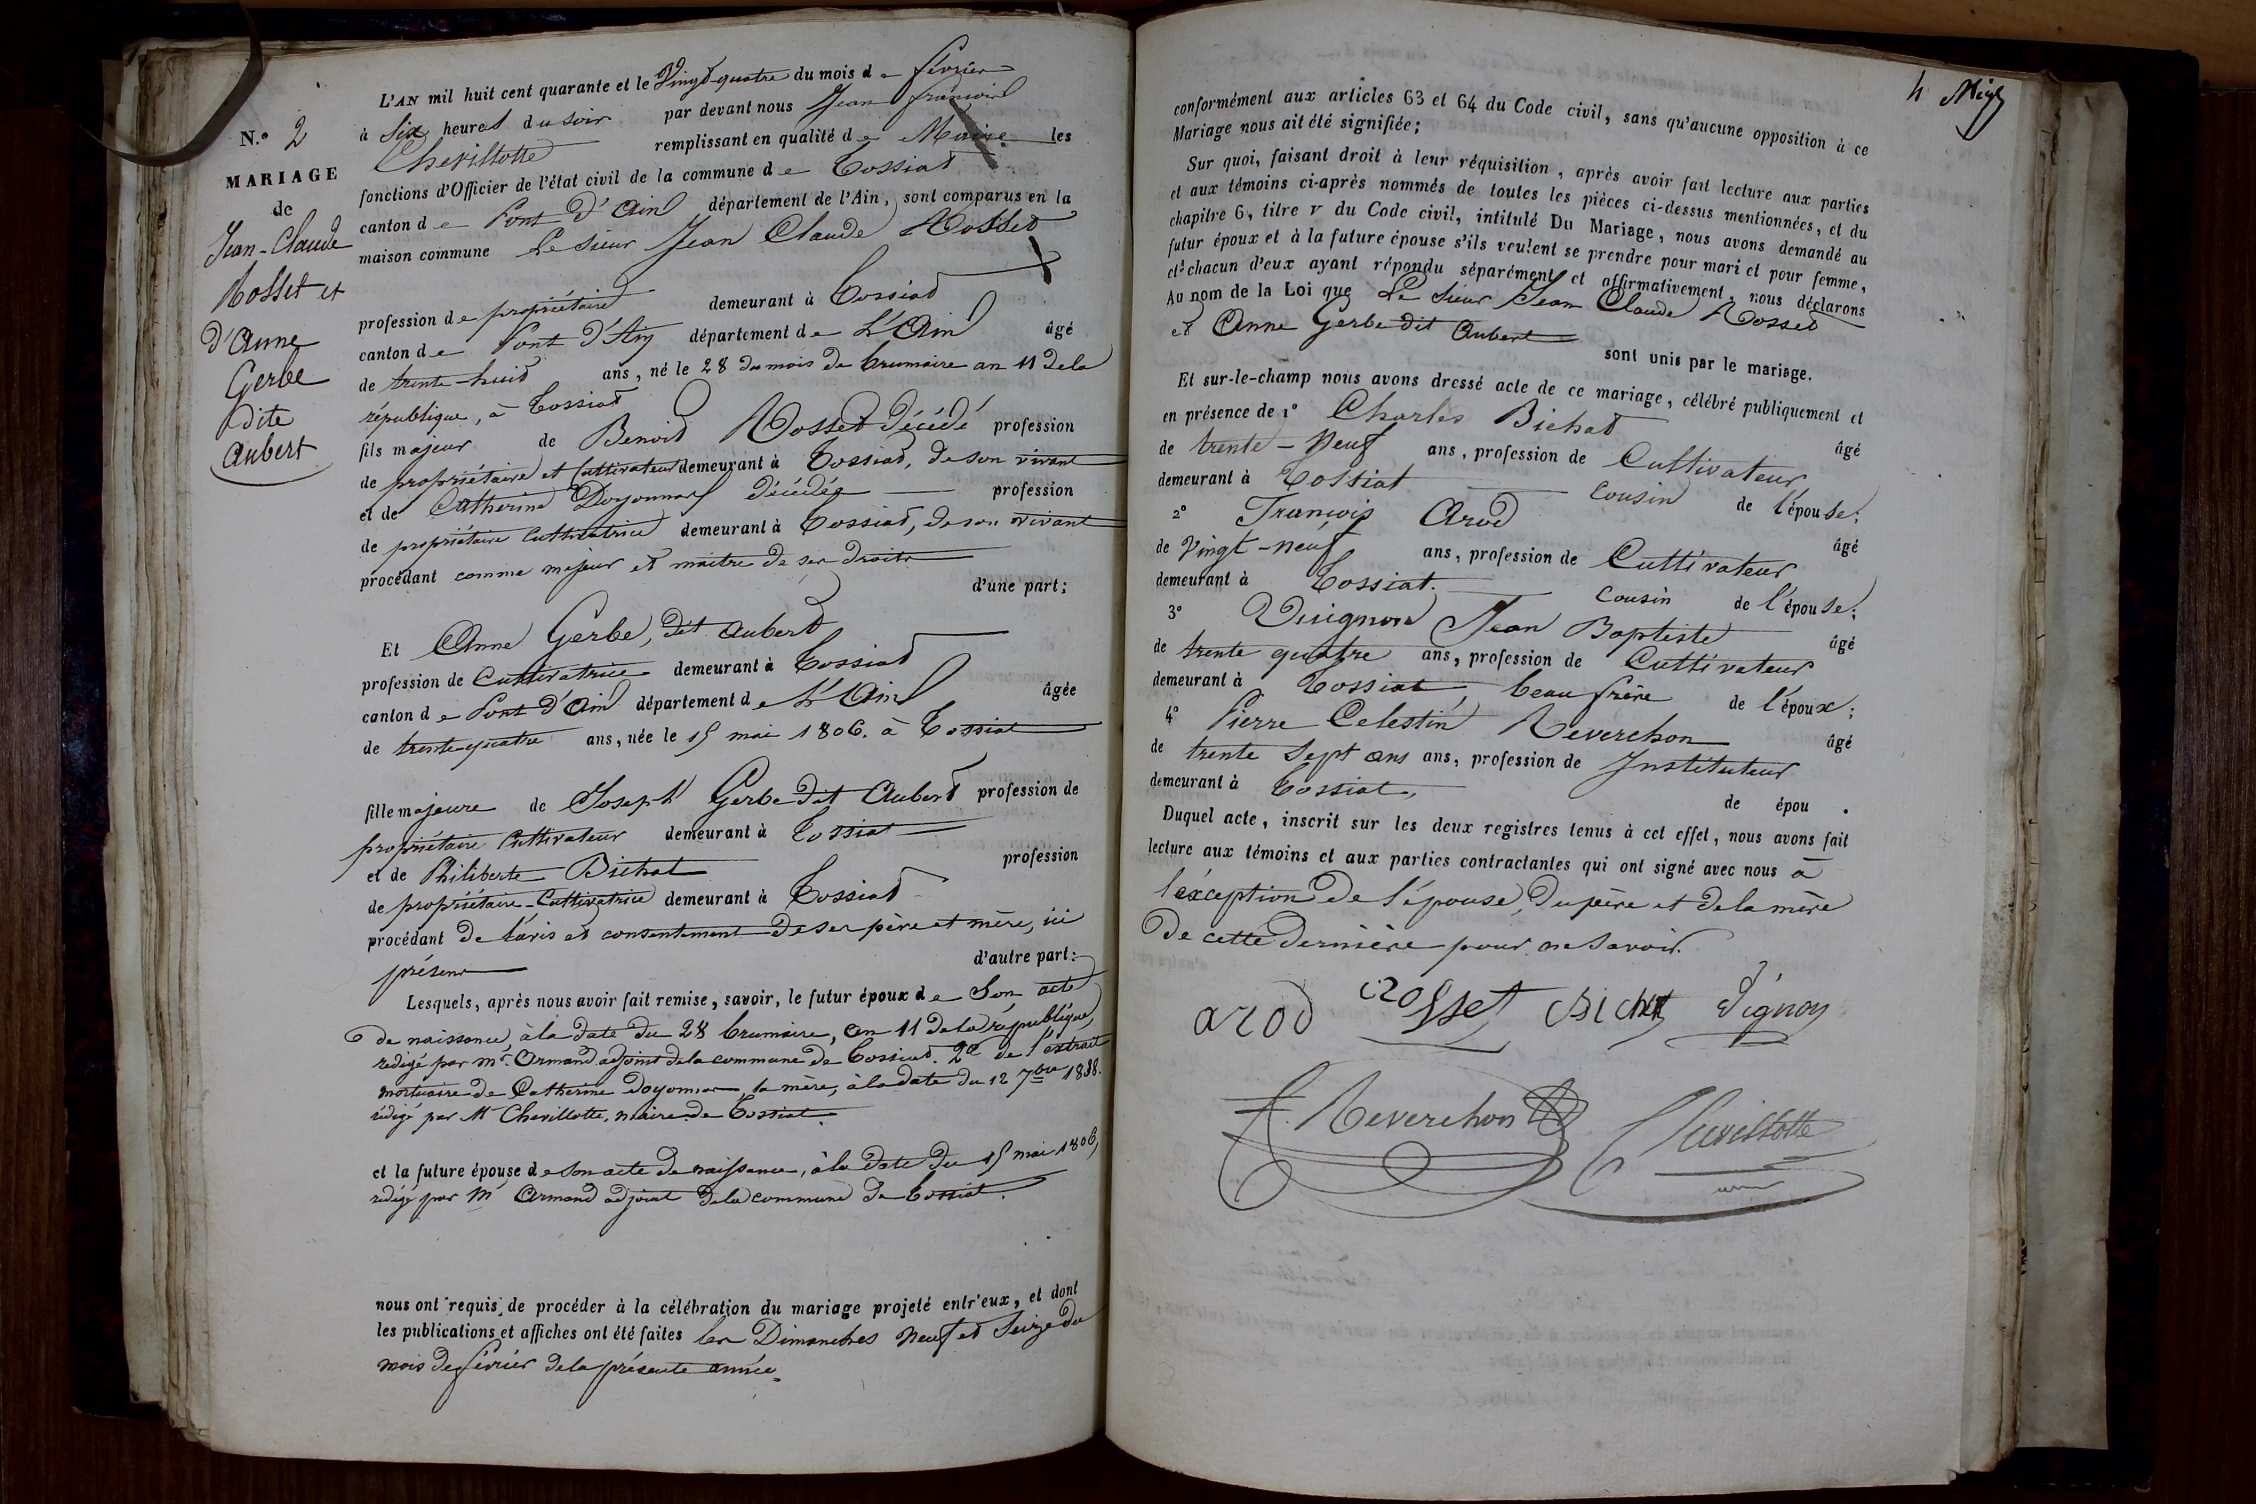 N.o 2
MARIAGE
de
Jean-Claude
Rosset et
d'Anne
Gerbe
dite
Aubert
L'AN mil huit cent quarante et le Vingt-quatre du mois de février
à Six heures du soir par devant nous Jean françois
Chevillotte remplissant en qualité de Maire les
fonctions d'Officier de l'état civil de la commune de Tossiat
canton de Pont d'Ain département de l'Ain, sont comparus en la
maison commune Le sieur Jean Claude Rosset
profession de propriétaire demeurant à Tossiat
canton de Pont d'Ain département de L'Ain âgé
de trente-huit ans, né le 28 du mois de brumaire an 11 de la
république, à Tossiat
fils majeur de Benoit Rosset décédé profession
de propriétaire et Cultivateur demeurant à Tossiat, de son vivant
et de Catherine Doyonnax décédée profession
de propriétaire Cultivatrice demeurant à Tossiat, de son vivant
procédant comme majeur et maitre de ses droits
d'une part;
Et Anne Gerbe, dit Aubert
profession de Cultivatrice demeurant à Tossiat
canton de Pont d'Ain département de L'Ain âgée
de trente-quatre ans, née le 15 mai 1806. à Tossiat
fille majeure de Joseph Gerbe dit Aubert profession de
propriétaire Cultivateur demeurant à Tossiat
et de Philiberte Bichat profession
de propriétaire-Cultivatrice demeurant à Tossiat
procédant de l'avis et consentement de ses père et mère, ici
présens d'autre part:
Lesquels, après nous avoir fait remise, savoir, le futur époux de Son acte
de naissance, à la date du 28 brumaire, an 11 de la république,
redigé par mr. Armand adjoint de la commune de Tossiat. 2e de l'extrait
mortuaire de Catherine Doyonnax, sa mère, à la date du 12 7bre 1838.
rédigé par Mr Chevillotte, maire de Tossiat.
et la future épouse de son acte de naissance, à la date du 15 mai 1806,
rédigé par Mr Armand adjoint de la commune de Tossiat.
nous ont requis de procéder à la célébration du mariage projeté entr'eux, et dont
les publications et affiches ont été faites les Dimanches neuf et Seize du
mois de février de la présente année.
4
conformément aux articles 63 et 64 du Code civil, sans qu'aucune opposition à ce
Mariage nous ait été signifiée;
Sur quoi, faisant droit à leur réquisition, après avoir fait lecture aux parties
et aux témoins ci-après nommés de toutes les pièces ci-dessus mentionnées, et du
chapitre 6, titre v du Code civil, intitulé Du Mariage, nous avons demandé au
futur époux et à la future épouse s'ils veulent se prendre pour mari et pour femme,
et chacun d'eux ayant répondu séparément et affirmativement, nous déclarons
Au nom de la Loi que Le sieur Jean Claude Rosset
et Anne Gerbe dit Aubert
sont unis par le mariage.
Et sur-le-champ nous avons dressé acte de ce mariage, célébré publiquement et
en présence de 1º Charles Bichat âgé
de trente-neuf ans, profession de Cultivateur
demeurant à Tossiat cousin de l'épouse;
2º François Arod âgé
de Vingt-neuf ans, profession de Cultivateur
demeurant à Tossiat. cousin de l'épouse;
3º Vuignon Jean Baptiste âgé
de trente quatre ans, profession de Cultivateur
demeurant à Tossiat, beau frère de l'époux;
4º Pierre Celestin Reverchon âgé
de trente Sept ans ans, profession de Instituteur
demeurant à Tossiat, de épou .
Duquel acte, inscrit sur les deux registres tenus à cet effet, nous avons fait
lecture aux témoins et aux parties contractantes qui ont signé avec nous à
l'exception de l'épouse, du père et de la mère
de cette dernière pour ne savoir.
arod rosset Bichat Vignon
Reverchon Chevillotte